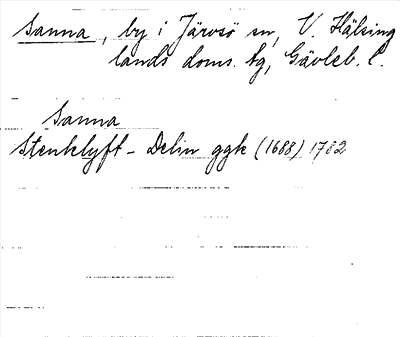 Sanna, by i Järvsö sn, V. Hälsing
lands doms. hg, Gävleb. l.
Sanna
Stenklyft - Delin ggk (1688) 1782